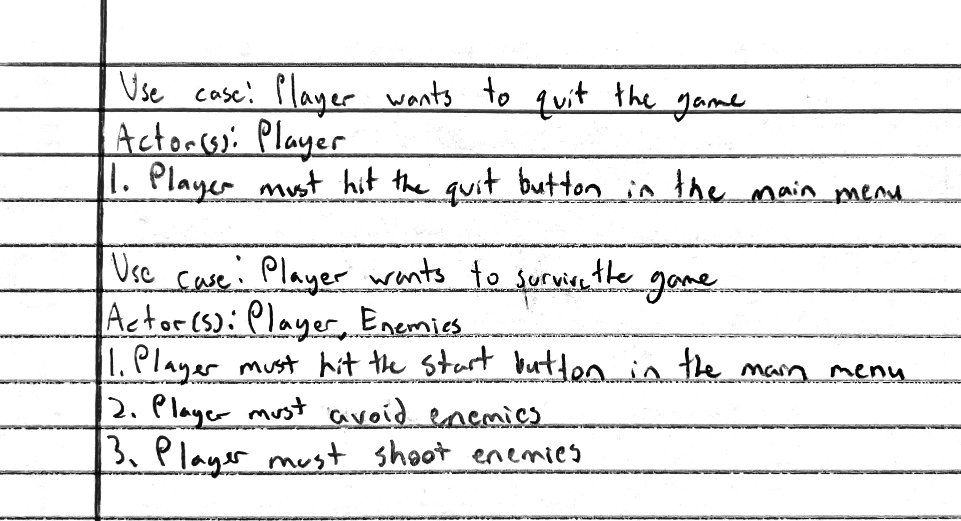 Use case: Player wants to quit the game
Actor(s): Player
1. Player must hit the quit button in the main menu
Use case: Player wants to survive the game
Actor(s): Player, Enemies
1. Player must hit the start button in the main menu
2. Player must avoid enemies
3. Player must shoot enemies